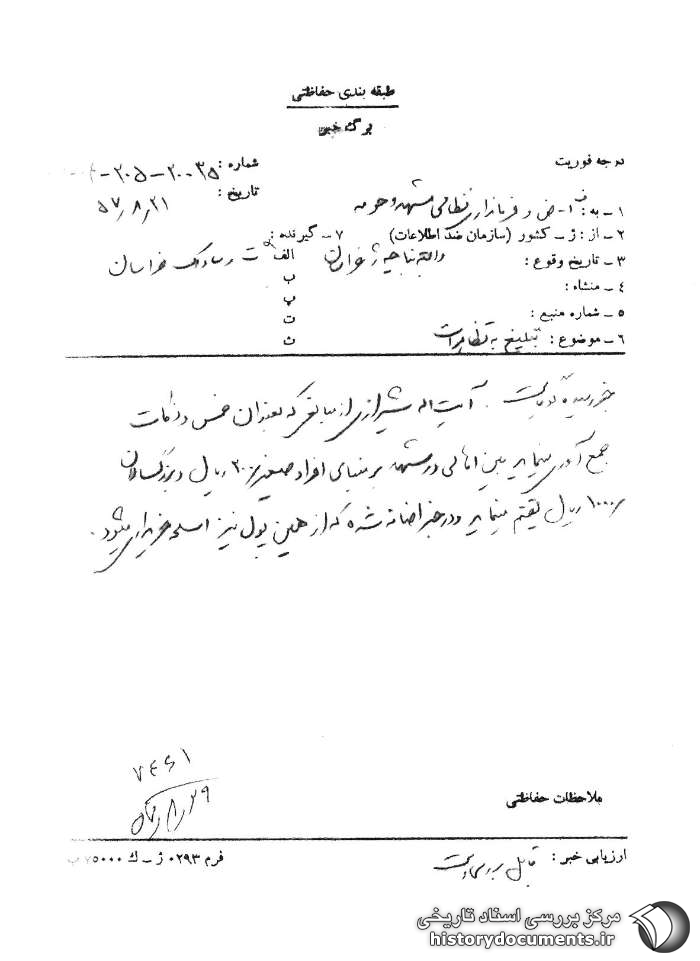 طبقه بندی حفاظتی
برگ خبر
درجه فوریت
شماره : ۲۰۵-۲۰۰۳۵
تاریخ : ۵۷/۸/۲۱
۱- به : ف ۱- ض و فرمانداری نظامی مشهد و حومه
۲- از : ژ - کشور (سازمان ضد اطلاعات)
۷- گیرنده :
۳- تاریخ وقوع :
ناحیه ژ خراسان
الف ت و ساواک خراسان
۴- منشاء :
ب
پ
۵- شماره منبع :
ت
۶- موضوع : تبلیغ به تظاهرات
ث
خبر رسیده حاکیست . آیت اله شیرازی از مبالغی که بعنوان خمس و ذکات
جمع آوری مینماید بین اهالی در مشهد بر مبنای افراد صغیر ۳۰۰ ریال و بزرگسالان
۱۰۰۰ ریال تقسیم مینماید و در خبر اضافه شده که از همین پول نیز اسلحه خریداری میشود .
۷۴۶۱
۲۹/۸
ملاحظات حفاظتی
ارزیابی خبر : قابل بررسی است
فرم ۰۲۹۳ ژ - ك
مرکز بررسی اسناد تاریخی
historydocuments.ir